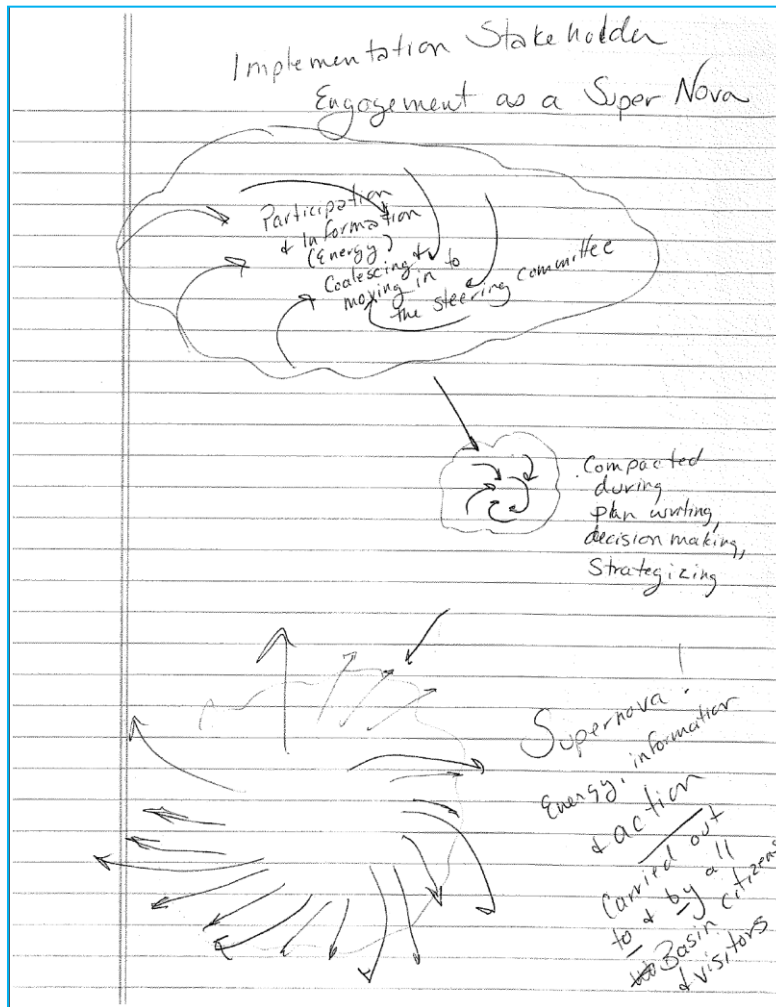 Implementation Stakeholder
Engagement as a Super Nova
Participation
& Information
(Energy)
Coalescing &
moving in to
the steering committee
Compacted
during
plan writing,
decision making,
Strategizing
Supernova!
Energy, information
& action
Carried out
to & by all
Basin citizens
& visitors